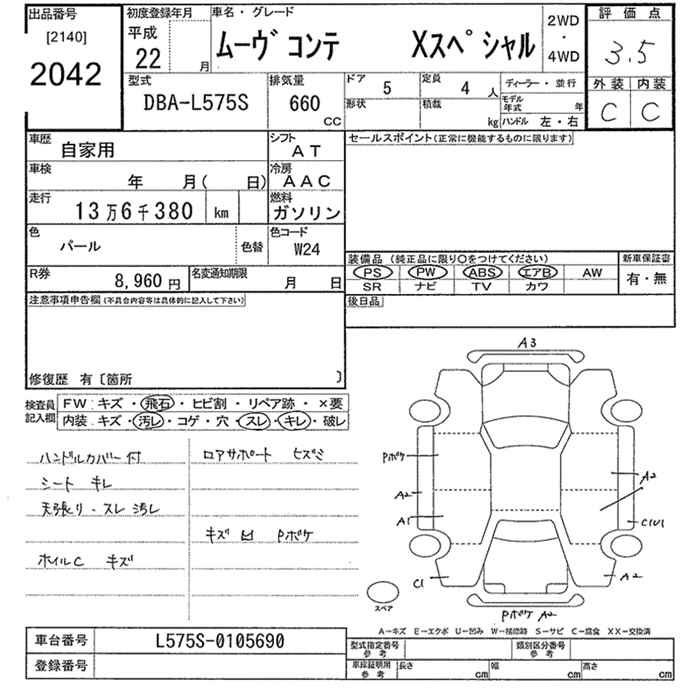 出品番号
[2140]
2042
初度登録年月
平成
22 月
車名・グレード
ムーヴ コンテ Xスペシャル
2WD
・
4WD
評価点
3.5
外装 内装
C C
型式
DBA-L575S
排気量
660
CC
ドア
5
定員
4 人
ディーラー・並行
モデル年式 年
形状
積載
kg
ハンドル 左・右
車歴
自家用
シフト
AT
車検
年 月( 日)
冷房
AAC
走行
13万6千380 km
燃料
ガソリン
色
パール
色替
色コード
W24
R券
8,960 円
名変通知期限
月 日
セールスポイント(正常に機能するものに限ります)
装備品 (純正品に限り○をつけてください)
新車保証書
PS PW ABS エアB AW
有・無
SR ナビ TV カワ
後日品
注意事項申告欄(不具合内容等は具体的に記入して下さい)
修復歴 有〔箇所 〕
検査員
記入欄
FW: キズ・飛石・ヒビ割・リペア跡・×要
内装: キズ・汚レ・コゲ・穴・スレ・キレ・破レ
ハンドルカバー付
シート キレ
天張り・スレ 汚レ
ホイルC キズ
ロアサポート ヒズミ
キズ 凹 Pボケ
A3
Pボケ
A2
A1
C1
A2
C1U1
A2
Pボケ A2
スペア
A-キズ E-エクボ U-凹み W-補修跡 S-サビ C-腐食 XX-交換済
車台番号
L575S-0105690
登録番号
型式指定番号
参考
類別区分番号
参考
車庫証明用
参考
長さ cm
幅 cm
高さ cm